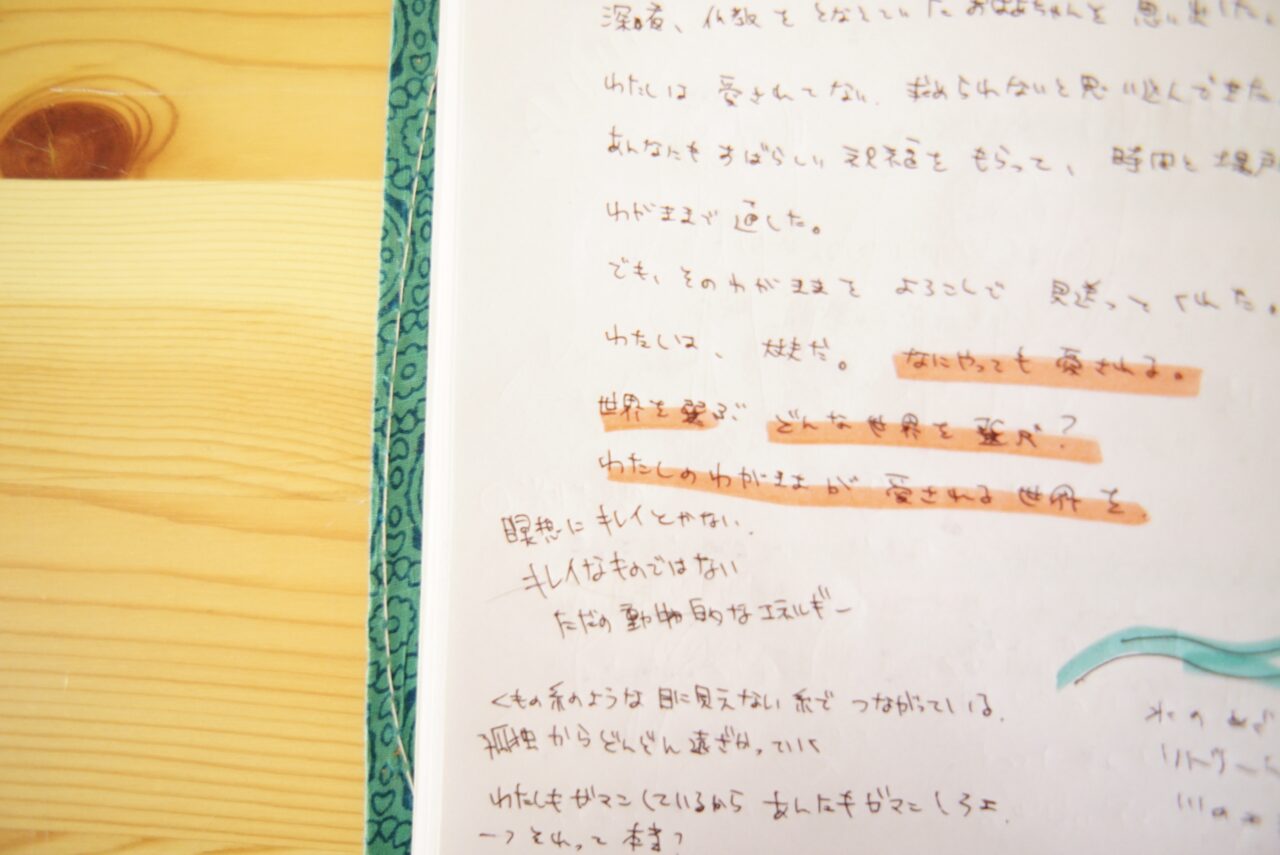 仏教を となえていた おばあちゃんを 思い出した。
わたしは 愛されてない、求められないと思い込んできた
あんなにも すばらしい 祝福を もらって、時間と場所
わがままで 通した。
でも、そのわがままを よろこんで 見送ってくれた。
わたしは、大丈夫だ。 なにやっても 愛される。
世界を選ぶ どんな世界を 選ぶ?
わたしのわがままが 愛される 世界を。
瞑想に キレイとかない、
キレイなものではない
ただの 動物的な エネルギー
くもの糸のような 目に見えない 糸で つながっている。
孤独からどんどん 遠ざかっていく
わたしもガマンしているから あんたもガマンしろよ。
→それって 本当?